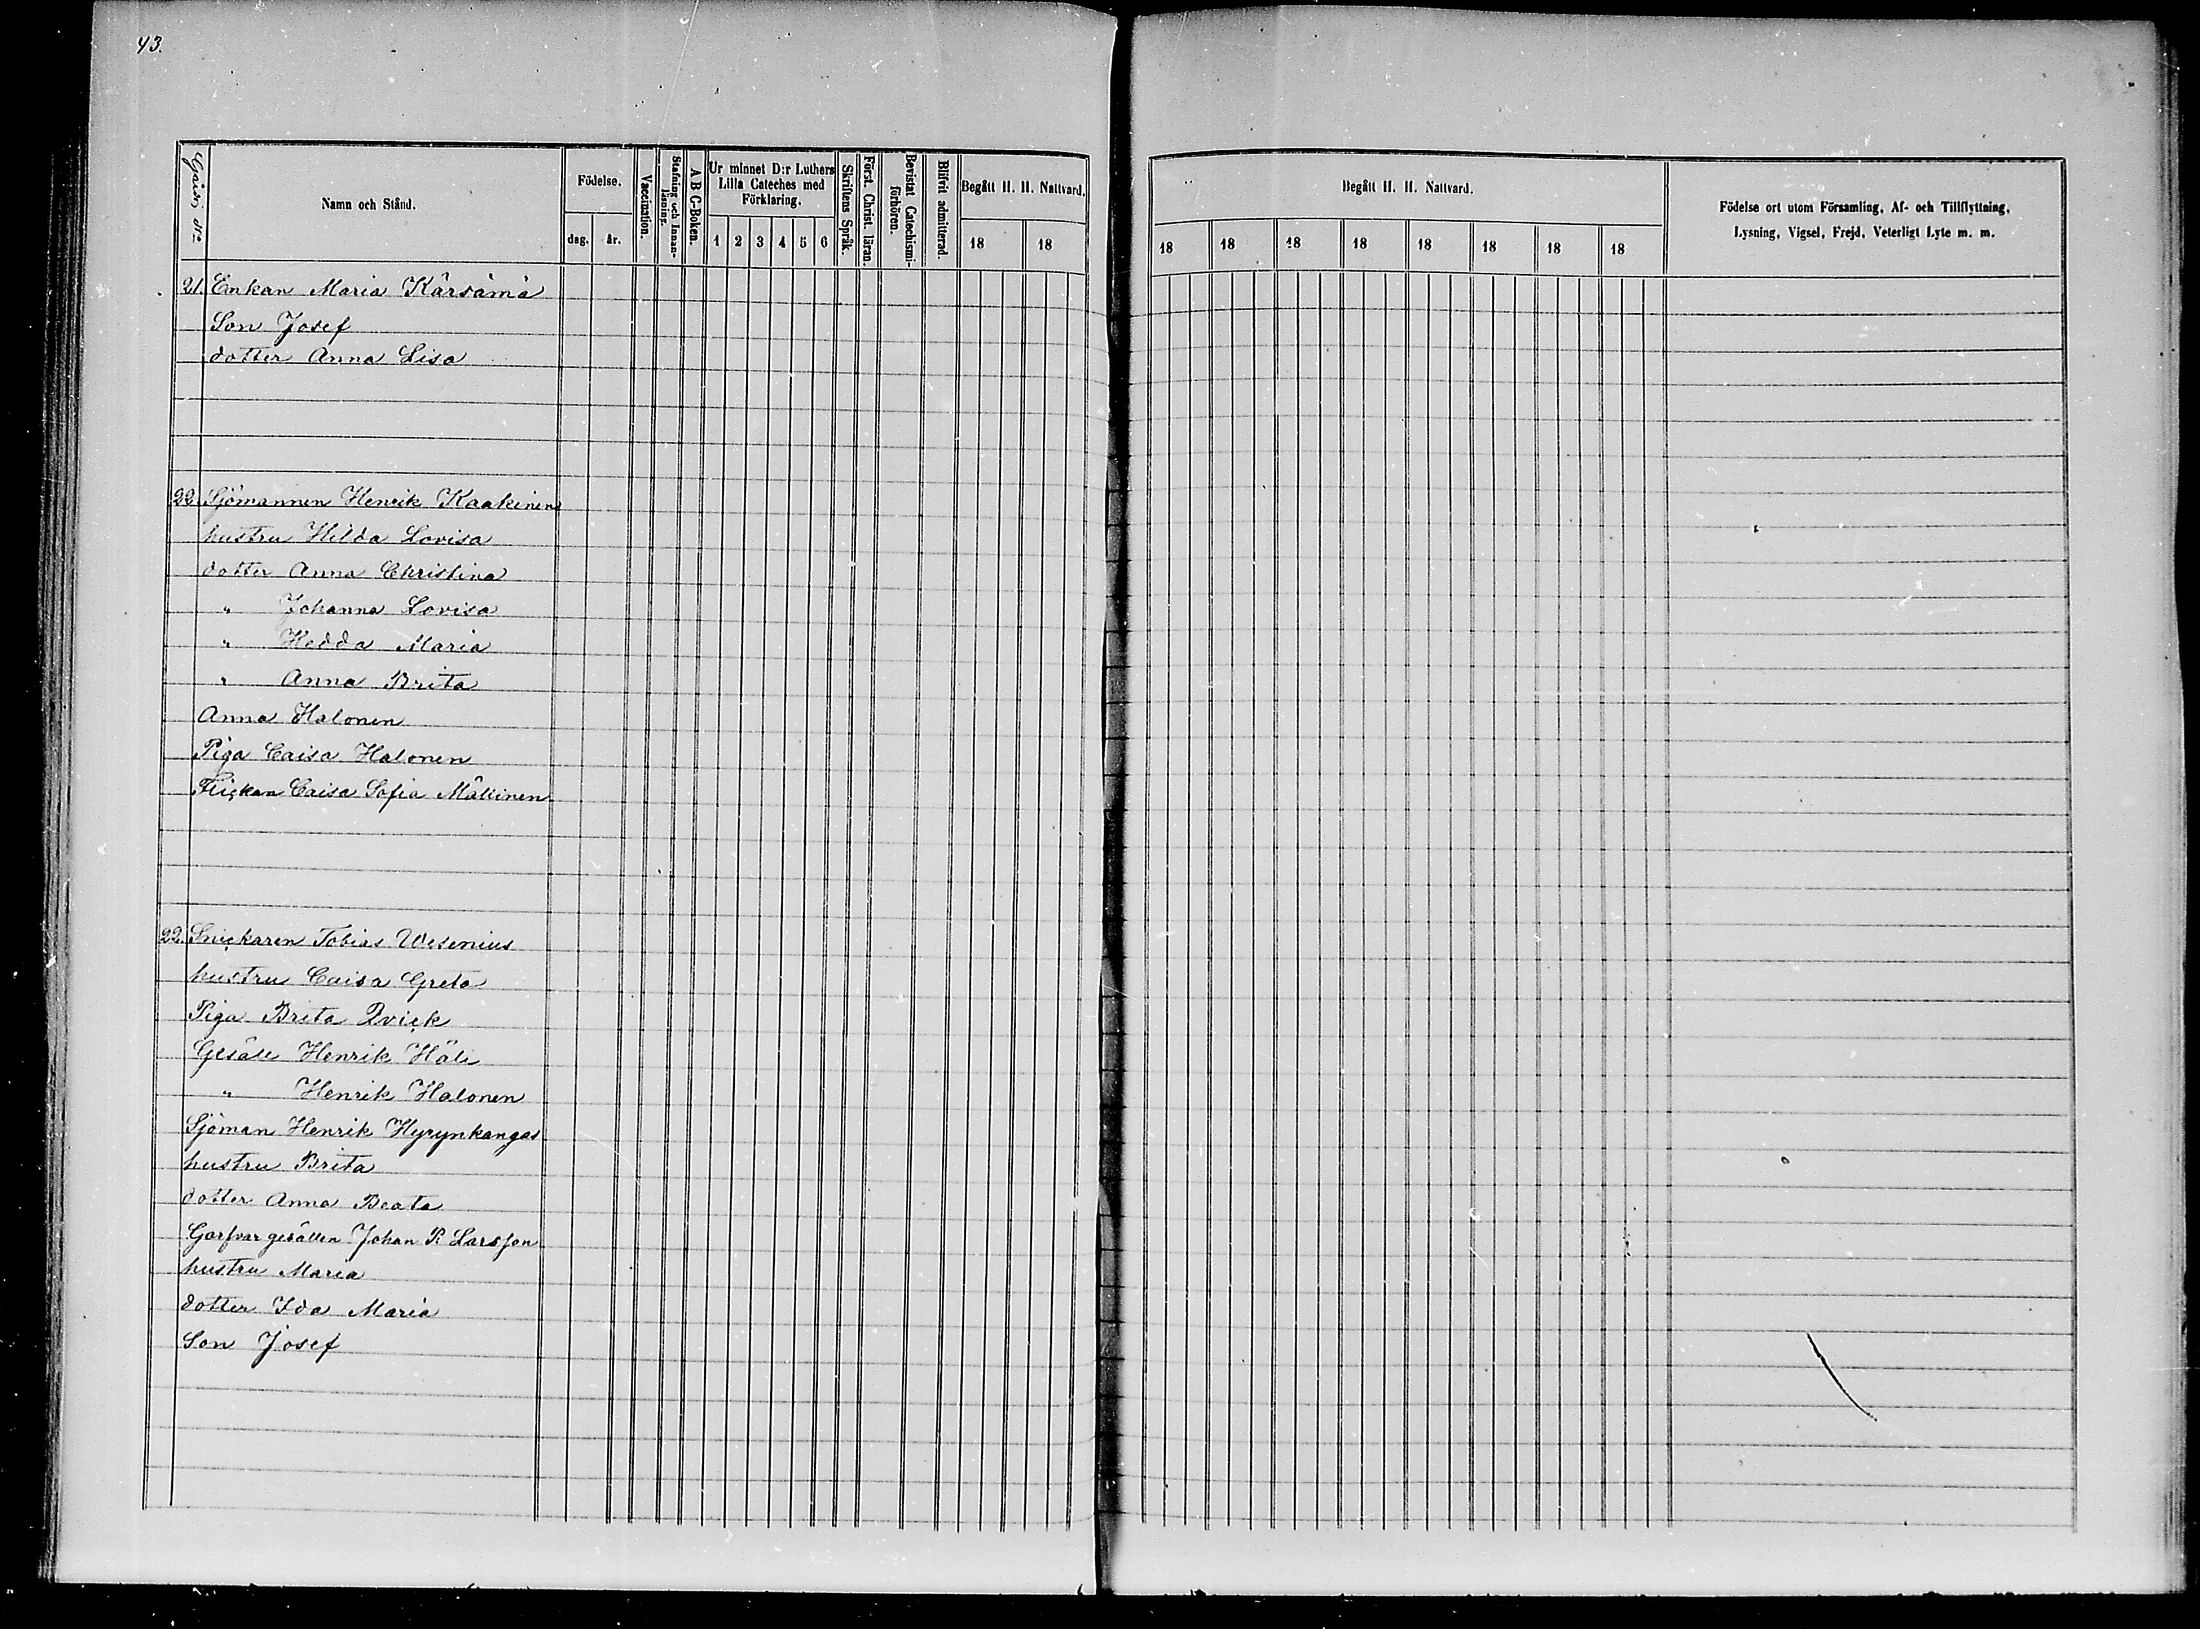 43.
Gård N:o
Namn och Stånd.
Födelse.
dag.
år.
Vaccination.
Stafning och Innan-
läsning.
A B C-Boken.
Ur minnet D:r Luthers
Lilla Cateches med
Förklaring.
1 2 3 4 5 6
Skriftens Språk.
Först. Christ. läran.
Bevistat Catechismi-
förhören.
Blifvit admitterad.
Begått H. H. Nattvard.
18 18
Begått H. H. Nattvard.
18 18 18 18 18 18 18 18
Födelse ort utom Församling, Af- och Tillflyttning,
Lysning, Vigsel, Frejd, Veterligt Lyte m. m.
21. Enkan Maria Kärsämä
Son Josef
dotter Anna Lisa
22 Sjömannen Henrik Kaakinen
hustru Hilda Lovisa
dotter Anna Christina
" Johanna Lovisa
" Hedda Maria
" Anna Brita
Anna Halonen
Piga Caisa Halonen
Flickan Caisa Sofia Mällinen
22. Snickaren Tobias Wesenius
hustru Caisa Greta
Piga Brita Qvick
Gesäll Henrik Häli
" Henrik Halonen
Sjöman Henrik Hyrynkangas
hustru Brita
dotter Anna Beata
Garfvar gesällen Johan R Larsson
hustru Maria
dotter Ida Maria
Son Josef